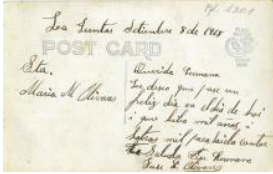 Las Juntas Setiembre 8 de 1918
POST CARD
Sta.
Maria M Olivas
Querida Hermana
Les deseo que pase un
feliz dia en el dia de hoi
i que biba mil años i
mil para
Saluda Su Hermano
Jose L Olivas